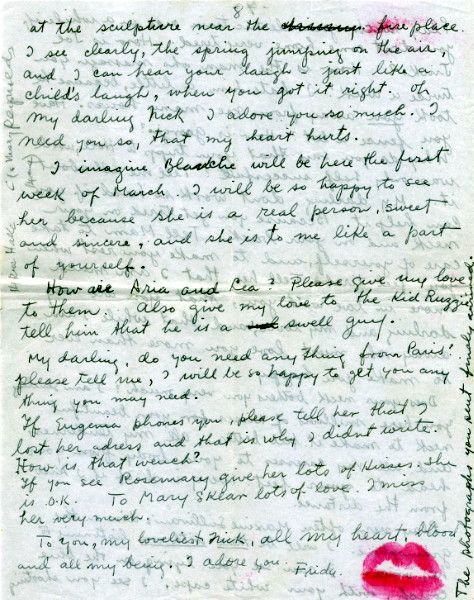 8
at the sculpture near the fireplace.
I see clearly, the spring jumping on the air,
and I can hear your laugh – just like a
child's laugh, when you got it right. Oh
my darling Nick I adore you so much. I
need you so, that my heart hurts.
I imagine Blanche will be here the first
week of March. I will be so happy to see
her because she is a real person, sweet
and sincere, and she is to me like a part
of yourself.
How are Aria and Lea? Please give my love
to them. Also give my love to the Kid Ruggie
tell him that he is a swell guy.
My darling, do you need any thing from Paris?
please tell me, I will be so happy to get you any
thing you may need.
If Eugenia phones you, please tell her that I
lost her adress and that is why I didnt write.
How is that wench?
If you see Rosemary give her lots of kisses. She
is O.K. To Mary Sklar lots of love. I miss
her very much.
To you, my loveliest Nick, all my heart, blood
and all my being. I adore you.
Frida
(to Mary Reynolds
The photographs you sent finally arrived.